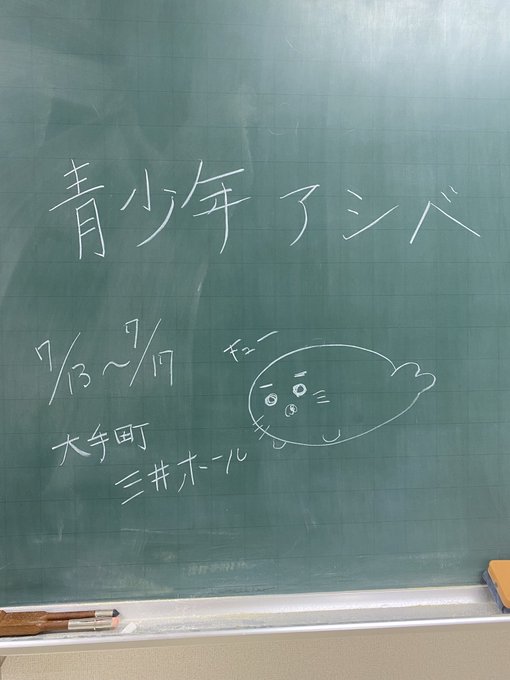 青少年アシベ
7/13～7/17
チュー
大手町
三井ホール